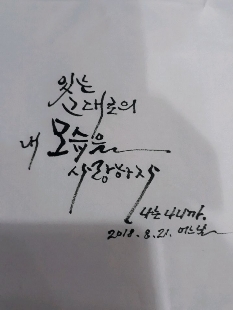 있는
그대로의
내 모습을
사랑하자
나는 나니까.
2018. 8. 21. 어느날